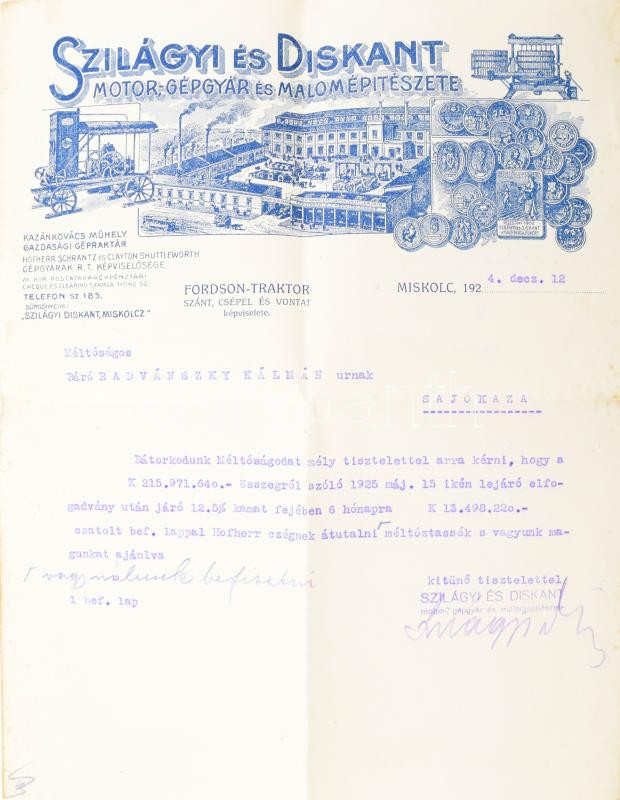 SZILÁGYI ÉS DISKANT
MOTOR-, GÉPGYÁR ÉS MALOMÉPITÉSZETE
KAZÁNKOVÁCS MŰHELY
GAZDASÁGI GÉPRAKTÁR
HOFHERR SCHRANTZ ÉS CLAYTON SHUTTLEWORTH
GÉPGYÁRAK R. T. KÉPVISELŐSÉGE
M. KIR. POSTATAKARÉKPÉNZTÁRI
CHEQUE ÉS CLEARING SZÁMLA
TELEFON SZ. 185.
SÜRGÖNYCIM:
„SZILÁGYI DISKANT, MISKOLCZ."
FORDSON-TRAKTOR
SZÁNT, CSÉPEL ÉS VONTAT
képviselete.
MISKOLC, 192 4. decz. 12
Méltóságos
Báró RADVÁNSZKY KÁLMÁN urnak
SAJÓKAZA
Bátorkodunk Méltóságodat mély tisztelettel arra kérni, hogy a
K 215.971.64o.- összegről szóló 1925 máj. 15 ikén lejáró elfo-
gadvány után járó 12.5% kamat fejében 6 hónapra K 13.498.22o.-
csatolt bef. lappal Hofherr czégnek átutalni méltóztassék s vagyunk ma-
gunkat ajánlva
vagy nálunk befizetni
kitünő tisztelettel
1 bef. lap
SZILÁGYI ÉS DISKANT
motor-, gépgyár és malomépitészete